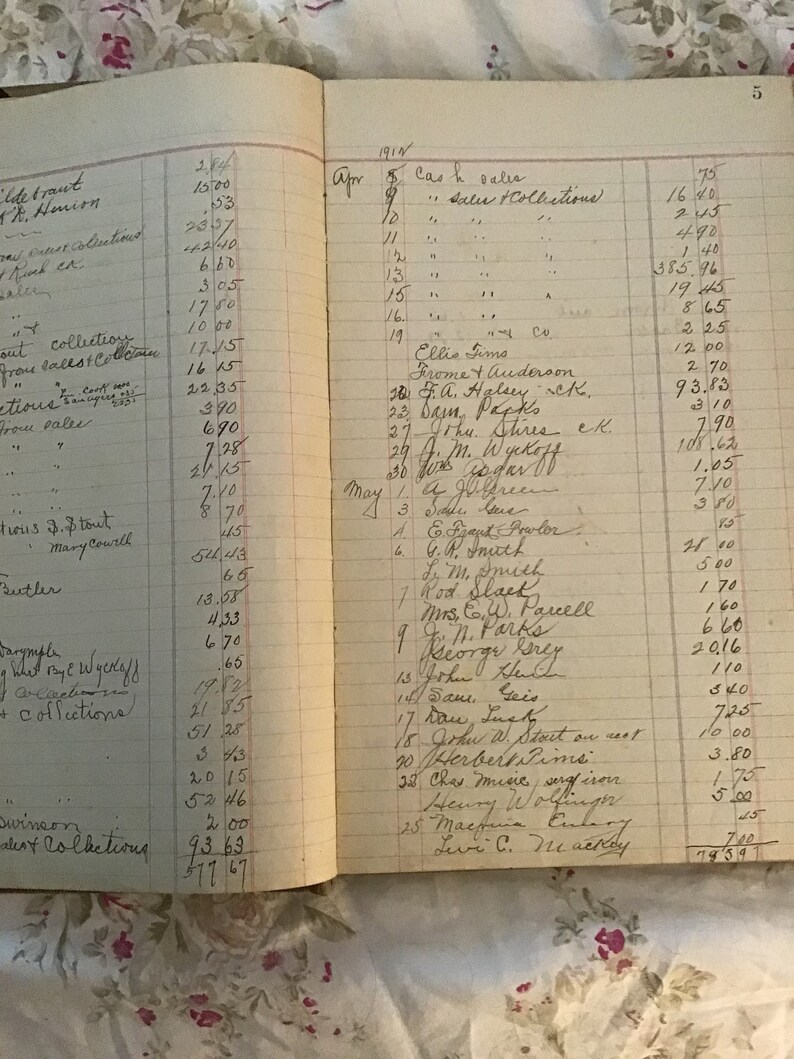 2.84
ildebraut 15 00
R. Henion .53
23 37
sales & collections 42 40
ck. 6 60
sales 3 05
" 17 80
" & 10 00
out collection 17.15
from sales & Collections 16 15
" " 22.35
ections 3 90
from sales 6 90
" " 7 28
" " 21.15
" " 7.10
" " 8 70
tions S. Stout .45
" Mary Cowell 54.43
65
Butler 13.58
4.33
6 70
Darymple .65
By E Wyckoff 19.82
Colections 21 85
& collections 51 28
3 43
20 15
" " 52 46
Swinson 2 00
ales & Collections 93 63
577 67
5
191
Apr 8 Cash sales 75
9 " sales & Collections 16 40
10 " " " 2 45
11 " " " 4 90
12 " " " 1 40
13 " " " 385.96
15 " " " 19 45
16. " " 8 65
19 " " & Co 2 25
Ellis Tims 12 00
Frome & Anderson 2 70
20 F. A. Halsey ck. 93.83
23 Sam. Parks 3 10
27 John. Stires ck. 7 90
29 J. M. Wyckoff 108.62
30 Wm Apgar 1.05
May 1. A J. Green 7.10
3 Sam Geis 3 80
4 E. Frank Fowler 85
6. G. R. Smith 28 00
L. M. Smith 5 00
7 Rod Slack 1 70
Mrs. E. W. Parcell 1 60
9 J. N. Parks 6 60
George Grey 20.16
13 John 1 10
14 Sam. Geis 3 40
17 Dan Lusk 7 25
18 John A. Stout on acct 10 00
20 Herbert Tims 3.80
22 Chas Music iron 1 75
Henry Wolfinger 5 00
25 Emery 45
Levi C. Mackey 7 00